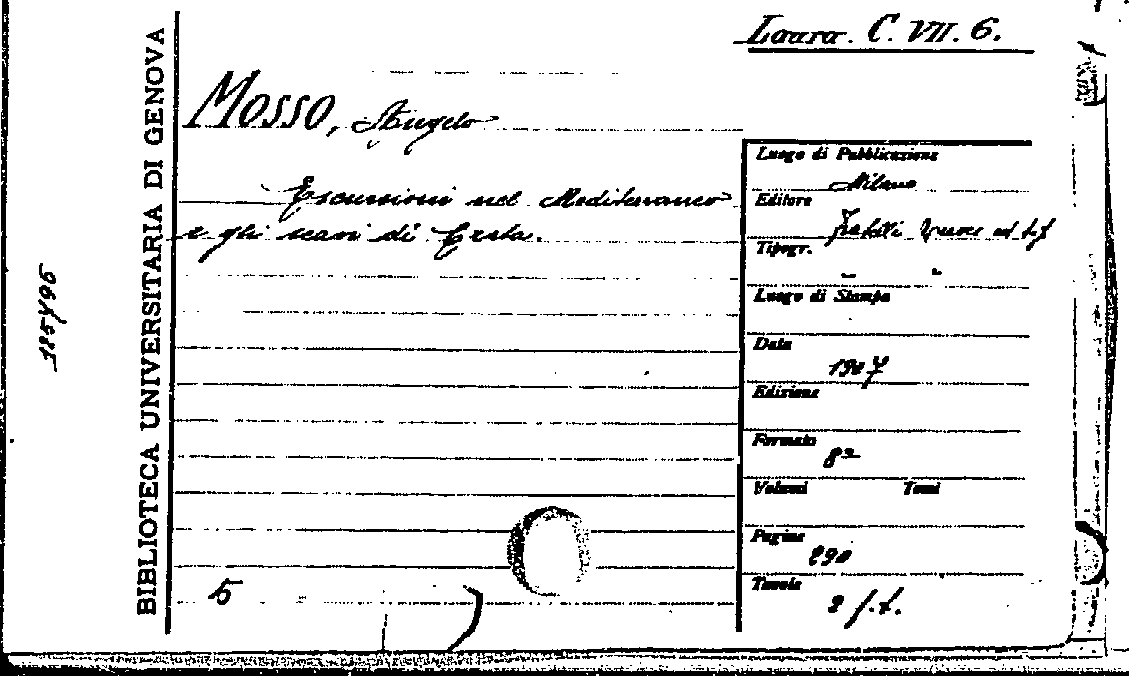 Laura. C. VII. 6.
BIBLIOTECA UNIVERSITARIA DI GENOVA
MOSSO, Angelo
Escursioni nel Mediterraneo
e gli scavi di Creta.
Luogo di Pubblicazione
Milano
Editore
Fratelli Treves ed
Tipogr.
Luogo di Stampa
Data
1907
Edizione
Formato
8º
Volumi Tomi
Pagine
290
Tavole
2 f.t.
5